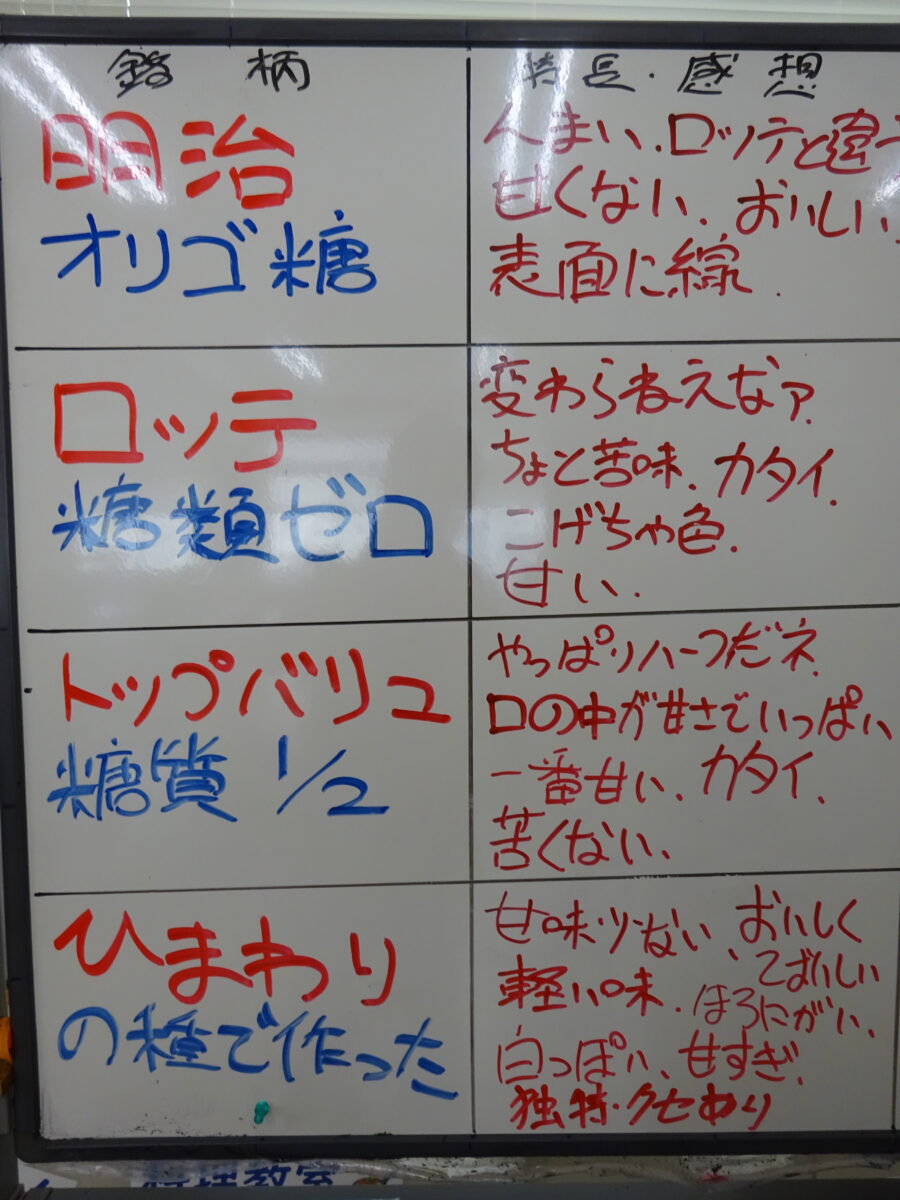 銘柄
特長・感想
明治
オリゴ糖
人まい、ロッテと違う
甘くない、おいしい、
表面に線.
ロッテ
糖類ゼロ
変わらねえなァ.
ちょと苦味、カタイ、
こげちゃ色.
甘い.
トップバリュ
糖質 1/2
やっぱりハーフだネ.
口の中が甘さでいっぱい、
一番甘い、カタイ、
苦くない、
ひまわり
の種で作った
甘味少ない、おいしく
ておいしい
軽い味.
ほろにがい、
白っぽい、甘すぎ、
独特・クセあり
料理教室